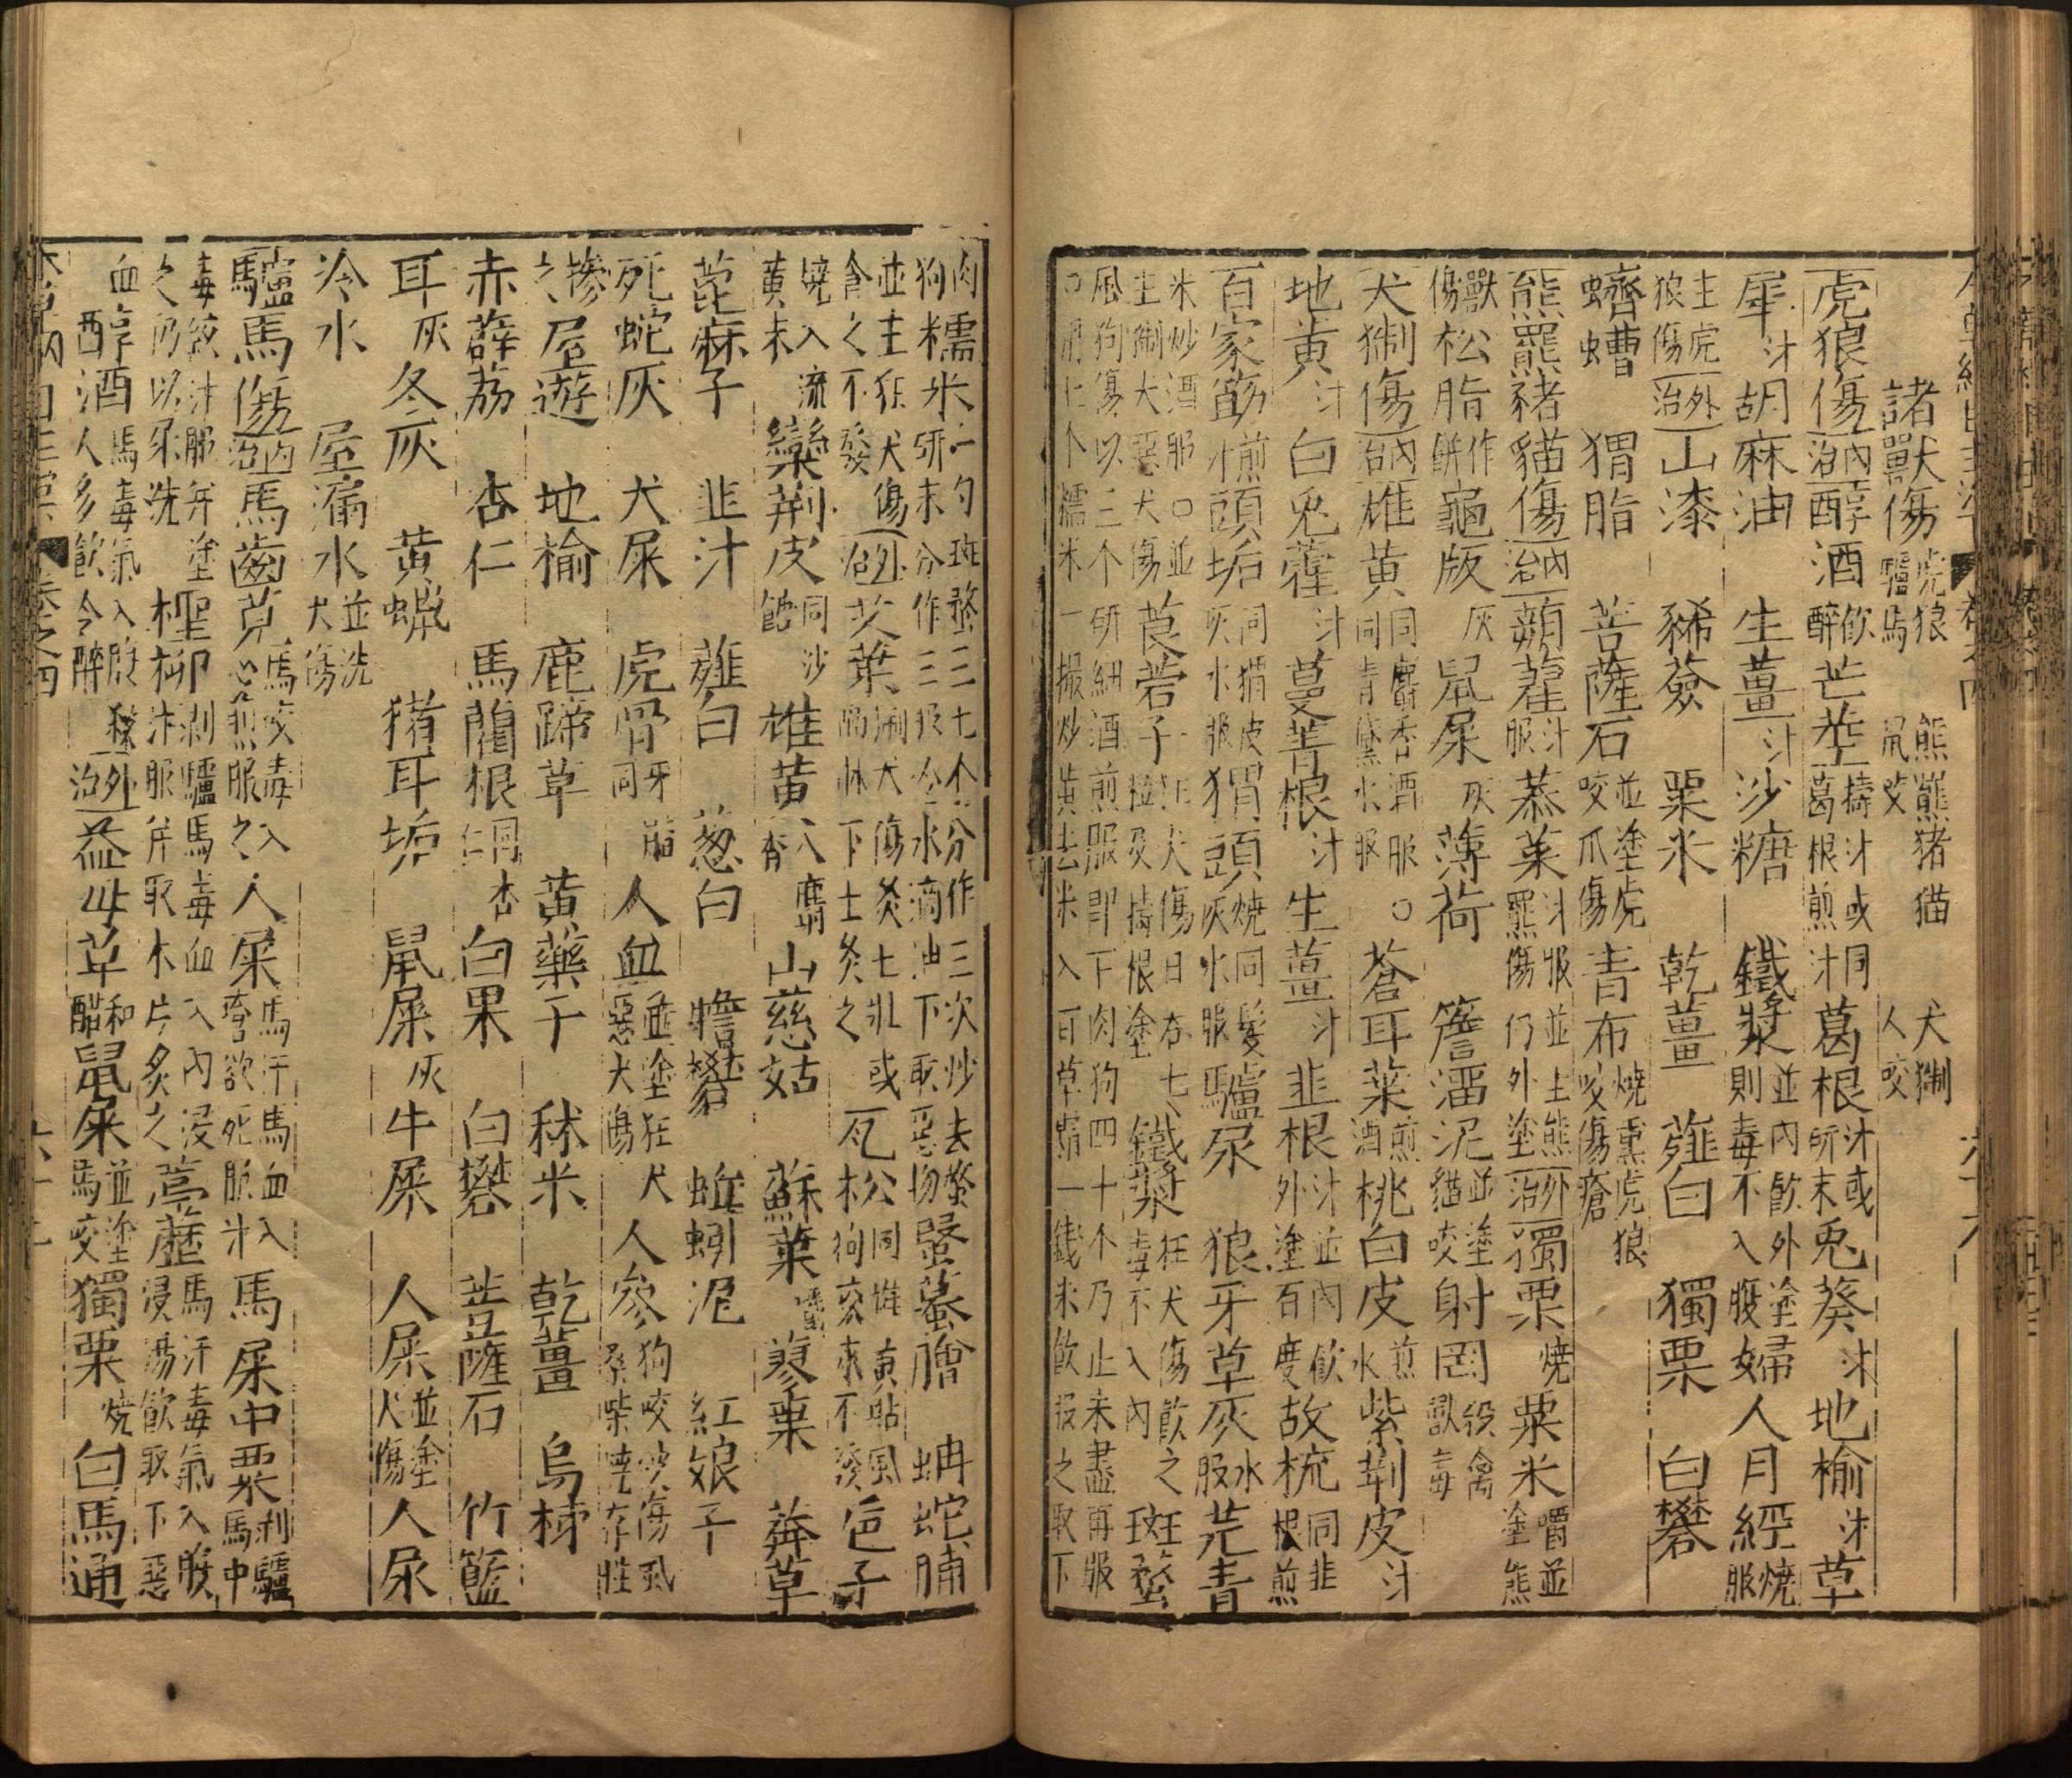 諸獸傷虎狼驢馬 熊羆猪猫鼠咬 犬猘人咬
虎狼傷內治醇酒飲醉芒莖擣汁或同葛根煎汁葛根汁或研末兎葵汁地榆汁草
犀汁胡麻油 生薑汁沙糖 鐵漿並內飲外塗則毒不入腹婦人月經燒服
主虎狼傷外治山漆 豨薟 粟米 乾薑 薤白 獨栗 白礬
蠐螬 猬脂 菩薩石並塗虎咬爪傷青布燒熏虎狼咬傷瘡
熊羆豬貓傷內治蒴藋汁服菾菜汁服並主熊羆傷仍外塗外治獨栗燒粟米嚼並塗熊
獸傷松脂作餅龜版灰鼠屎灰薄荷 簷溜泥並塗猫咬射罔殺禽獸毒
犬猘傷內治雄黃同麝香酒服○同青黛水服蒼耳葉煎酒桃白皮煎水紫荊皮汁
地黃汁白兎藿汁蔓菁根汁生薑汁韭根汁並內飲外塗百度故梳同韭根煎
百家筯煎汁頭垢同猬皮灰水服猬頭燒同髮灰水服驢尿 狼牙草灰水服芫青
米炒酒服○並主猘犬惡犬傷莨菪子狂犬傷日吞七粒及擣根塗鐵漿狂犬傷飲之毒不入內斑蝥
風狗傷以三个研細酒煎服即下肉狗四十个乃止未盡再服○用七个糯米一撮炒黃去米入百草霜一錢米飲服之取下
肉狗糯米一勺斑蝥三七个分作三次炒去蝥研末分作三服冷水滴油下取惡物蛩蚕膾 蚺蛇脯
並主狂犬傷食之不發外治艾葉猘犬傷灸七壯或隔牀下土灸之瓦松同雄黃貼風狗咬永不發巵子
燒入硫黃末欒荊皮同沙雄黃入麝香山慈姑 蘇葉嚼蓼葉 莽草
萞麻子 韭汁 薤白 葱白 膽礬 蚯蚓泥 紅娘子
死蛇灰 犬屎 虎骨牙脂同人血並塗狂犬惡犬傷人參狗咬吹傷風桑柴燒存性
摻之屋遊 地榆 鹿蹄草 黃藥子 秫米 乾薑 烏柿
赤薜荔 杏仁 馬藺根同杏仁白果 白礬 菩薩石 竹籃
耳灰冬灰 黃蠟 猪耳垢 鼠屎灰牛屎 人屎並塗犬傷人尿
冷水 屋漏水並洗犬傷
驢馬傷內治馬齒莧馬咬毒入心煎服之人屎馬汗馬血入瘡欲死服汁馬屎中粟剝驢馬中
毒絞汁服并塗之仍以尿洗檉柳剝驢馬毒血入內浸汁服并取木片炙之葶藶馬汗毒氣入腹浸湯飲取下惡
血醇酒馬毒氣入腹殺人多飲令醉外治益母草和醋鼠屎並塗馬咬獨栗燒白馬通